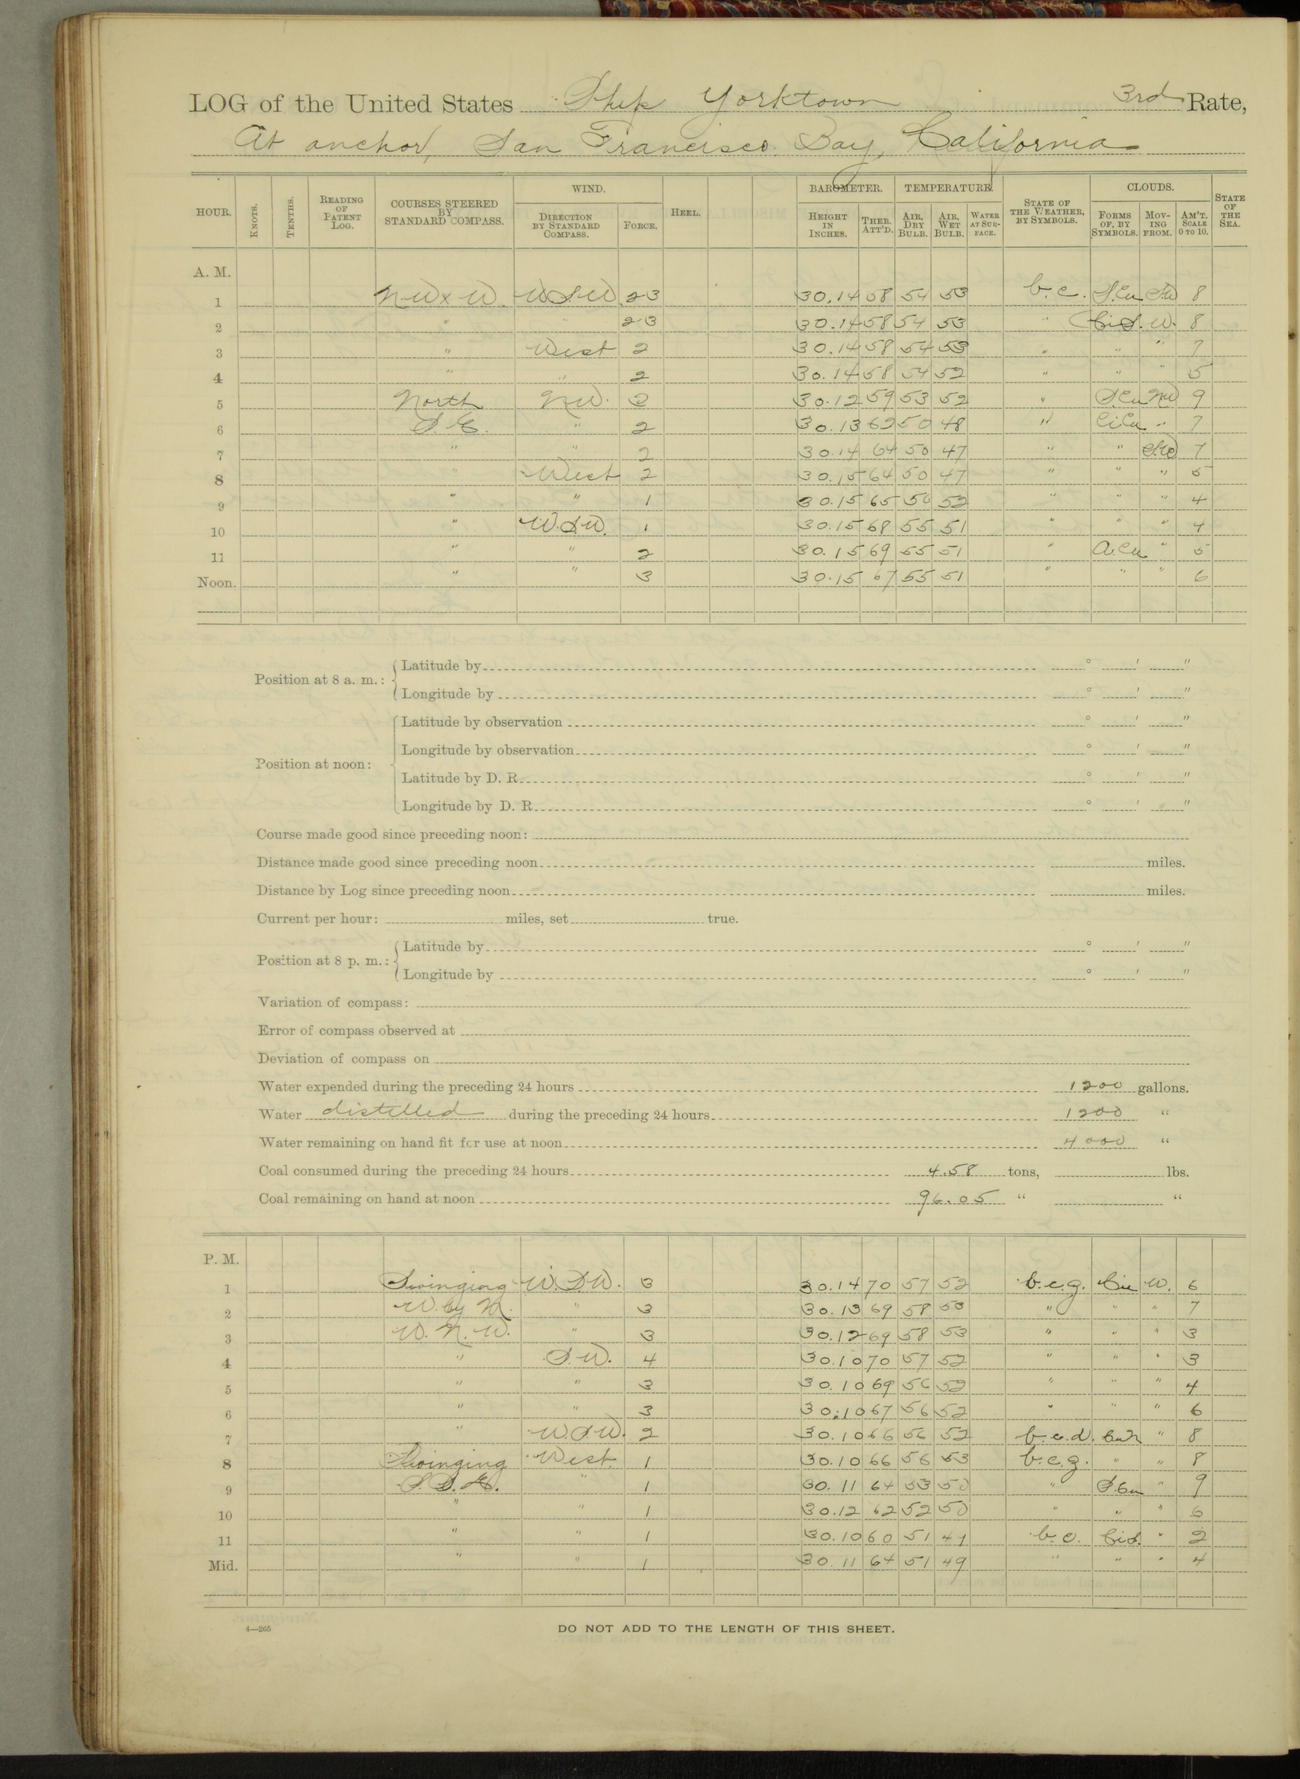 LOG of the United States Ship Yorktown 3rd Rate,
At anchor, San Francisco Bay, California
HOUR. KNOTS. TENTHS. READING OF PATENT LOG. COURSES STEERED BY STANDARD COMPASS. WIND. DIRECTION BY STANDARD COMPASS. FORCE. HEEL. BAROMETER. HEIGHT IN INCHES. THER. ATT'D. TEMPERATURE AIR, DRY BULB. AIR, WET BULB. WATER AT SURFACE. STATE OF THE WEATHER, BY SYMBOLS. CLOUDS. FORMS OF, BY SYMBOLS. MOVING FROM. AM'T. SCALE 0 TO 10. STATE OF THE SEA.
A. M.
1 NW x W. WSW 23 30.14 58 54 53 b.c. S.Cu SW 8
2 " " 23 30.14 58 54 53 " Ci.S. W. 8
3 " West 2 30.14 58 54 53 " " " 7
4 " " 2 30.14 58 54 52 " " " 5
5 North NW. 2 30.12 59 53 52 " S.Cu NW 9
6 S.E. " 2 30.13 62 50 48 " Ci.Cu " 7
7 " " 2 30.14 64 50 47 " " SW 7
8 " West 2 30.15 64 50 47 " " " 5
9 " " 1 30.15 65 50 52 " " " 4
10 " W.S.W. 1 30.15 68 55 51 " " " 4
11 " " 2 30.15 69 55 51 " A.Cu " 5
Noon. " " 3 30.15 67 55 51 " " " 6
Position at 8 a. m.: Latitude by ° ' "
Longitude by ° ' "
Latitude by observation ° ' "
Longitude by observation ° ' "
Position at noon:
Latitude by D. R. ° ' "
Longitude by D. R. ° ' "
Course made good since preceding noon:
Distance made good since preceding noon miles.
Distance by Log since preceding noon miles.
Current per hour: miles, set true.
Position at 8 p. m.: Latitude by ° ' "
Longitude by ° ' "
Variation of compass:
Error of compass observed at
Deviation of compass on
Water expended during the preceding 24 hours 1200 gallons.
Water distilled during the preceding 24 hours 1200 "
Water remaining on hand fit for use at noon 4000 "
Coal consumed during the preceding 24 hours 4.58 tons, lbs.
Coal remaining on hand at noon 96.05 " "
P. M.
1 Swinging W.S.W. 3 30.14 70 57 52 b.c.g. W. 6
2 W. by N. " 3 30.13 69 58 53 " " " 7
3 W.N.W. " 3 30.12 69 58 53 " " " 3
4 " S.W. 4 30.10 70 57 52 " " " 3
5 " " 3 30.10 69 56 52 " " " 4
6 " " 3 30.10 67 56 52 " " " 6
7 " W.S.W. 2 30.10 66 56 52 b.c.d. " 8
8 Swinging West. 1 30.10 66 56 53 b.c.g. " " 8
9 S.S.E. " 1 30.11 64 53 50 " S.Cu " 9
10 " " 1 30.12 62 52 50 " " " 6
11 " " 1 30.10 60 51 49 b.c. Ci.S. " 2
Mid. " " 1 30.11 64 51 49 " " " 4
4—265
DO NOT ADD TO THE LENGTH OF THIS SHEET.